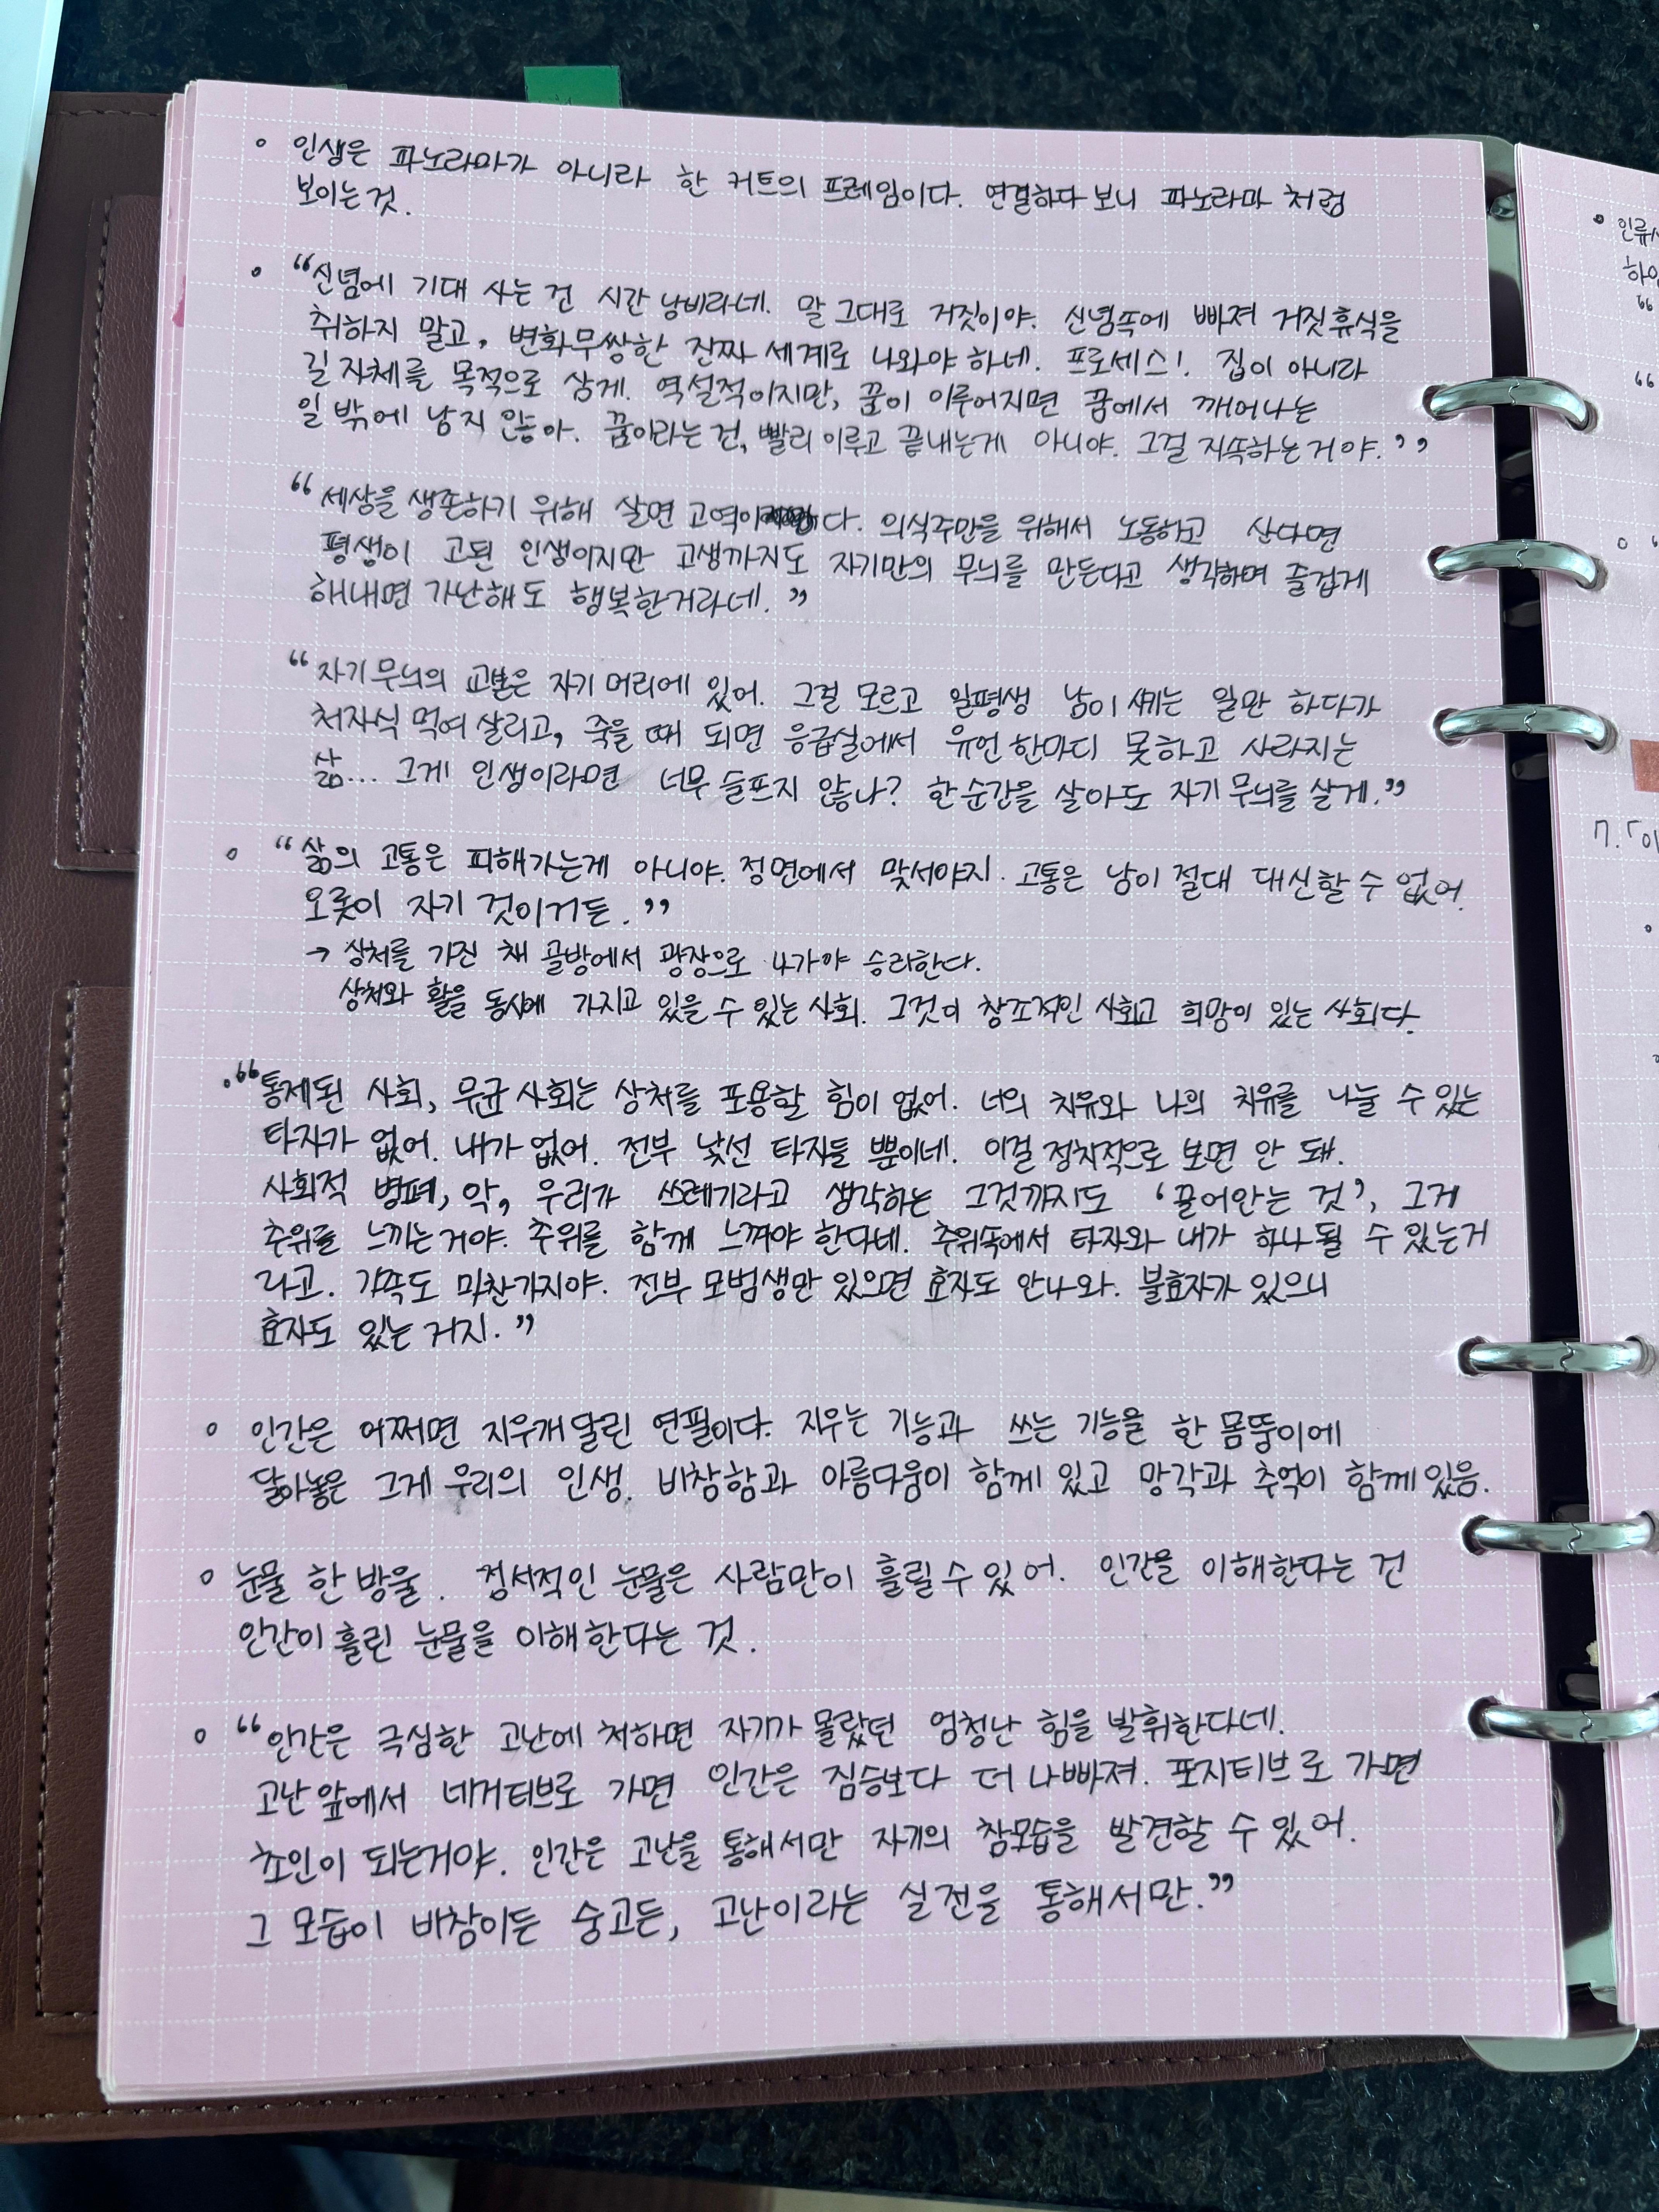 • 인생은 파노라마가 아니라 한 커트의 프레임이다. 연결하다 보니 파노라마 처럼
보이는 것.
• “신념에 기대 사는 건 시간 낭비라네. 말 그대로 거짓이야. 신념속에 빠져 거짓휴식을
취하지 말고, 변화무쌍한 진짜 세계로 나와야 하네. 프로세스! 집이 아니라
길 자체를 목적으로 삼게. 역설적이지만, 꿈이 이루어지면 꿈에서 깨어나는
일 밖에 남지 않아. 꿈이라는 건, 빨리 이루고 끝내는게 아니야. 그걸 지속하는거야.”
“세상을 생존하기 위해 살면 고역이다. 의식주만을 위해서 노동하고 산다면
평생이 고된 인생이지만 고생까지도 자기만의 무늬를 만든다고 생각하며 즐겁게
해내면 가난해도 행복한거라네.”
“자기무늬의 교본은 자기 머리에 있어. 그걸 모르고 일평생 남이 시키는 일만 하다가
처자식 먹여 살리고, 죽을 때 되면 응급실에서 유언 한마디 못하고 사라지는
삶... 그게 인생이라면 너무 슬프지 않나? 한순간을 살아도 자기 무늬를 살게.”
• “삶의 고통은 피해가는게 아니야. 정면에서 맞서야지. 고통은 남이 절대 대신할 수 없어.
오롯이 자기 것이거든.”
→ 상처를 가진 채 골방에서 광장으로 나가야 승리한다.
상처와 활을 동시에 가지고 있을 수 있는 사회. 그것이 창조적인 사회고 희망이 있는 사회다.
• “통제된 사회, 무균 사회는 상처를 포용할 힘이 없어. 너의 치유와 나의 치유를 나눌 수 있는
타자가 없어. 내가 없어. 전부 낯선 타자들 뿐이네. 이걸 정치적으로 보면 안 돼.
사회적 병폐, 악, 우리가 쓰레기라고 생각하는 그것까지도 ‘끌어안는 것’, 그게
추위를 느끼는거야. 추위를 함께 느껴야 한다네. 추위속에서 타자와 내가 하나 될 수 있는거
라고. 가족도 마찬가지야. 전부 모범생만 있으면 효자도 안나와. 불효자가 있으니
효자도 있는 거지.”
• 인간은 어쩌면 지우개 달린 연필이다. 지우는 기능과 쓰는 기능을 한 몸뚱이에
달아놓은 그게 우리의 인생. 비참함과 아름다움이 함께 있고 망각과 추억이 함께 있음.
• 눈물 한 방울. 정서적인 눈물은 사람만이 흘릴 수 있어. 인간을 이해한다는 건
인간이 흘린 눈물을 이해한다는 것.
• “인간은 극심한 고난에 처하면 자기가 몰랐던 엄청난 힘을 발휘한다네.
고난 앞에서 네거티브로 가면 인간은 짐승보다 더 나빠져. 포지티브로 가면
초인이 되는거야. 인간은 고난을 통해서만 자기의 참모습을 발견할 수 있어.
그 모습이 비참이든 숭고든, 고난이라는 실전을 통해서만.”
• 인류
“
“
7.「이